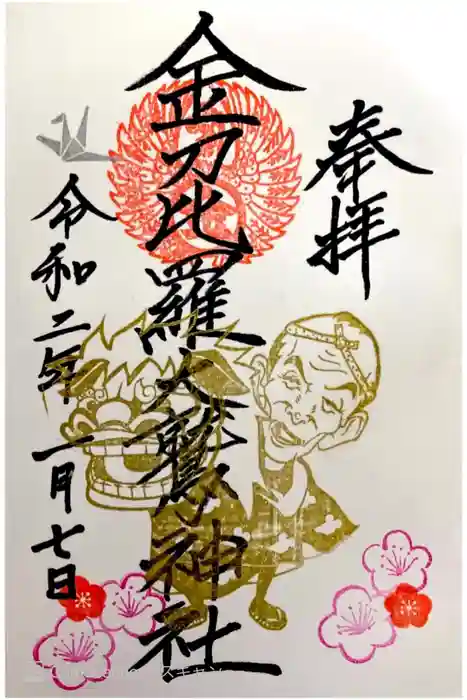 奉拝
金刀比羅大鷲神社
令和二年一月七日